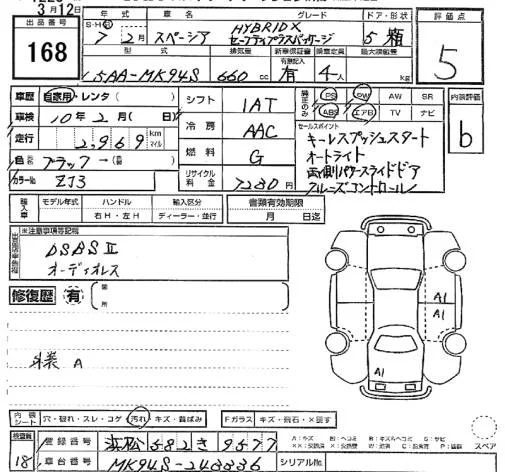 3月12日
出品番号
168
年式 車名 グレード ドア・形状
S・H 7年 2月 スペーシア HYBRID X セーフティプラスパッケージ 5 箱
型式 排気量 新車保証書 乗車定員 最大積載量
有無記入
5AA-MK94S 660 cc 有 4人 kg
評価点
5
車歴 自家用・レンタ( )
車検 10年2月( 日)
走行 2,969 km マイル
色 ブラック→(黒)
カラーNo ZJ3
シフト IAT
冷房 AAC
燃料 G
リサイクル料金 7280円
純正のみ
PS PW AW SR
ABS エアB TV ナビ
内装評価
b
セールスポイント
キーレスプッシュスタート
オートライト
両側パワースライドドア
クルーズコントロール
輸入車 モデル年式 ハンドル 輸入区分
右H・左H ディーラー・並行
書類有効期限
月 日迄
※注意事項等記載
DSBS II
オーディオレス
修復歴 有
箇所
外装 A
A1
A1
A1
内装シート 穴・破れ・スレ・コゲ 汚れ・キズ・黄ばみ
Fガラス キズ・飛石・×要す
スペア
検査員
18
登録番号 浜松 582 き 9577
車台番号 MK94S-248336 シリアルNo.